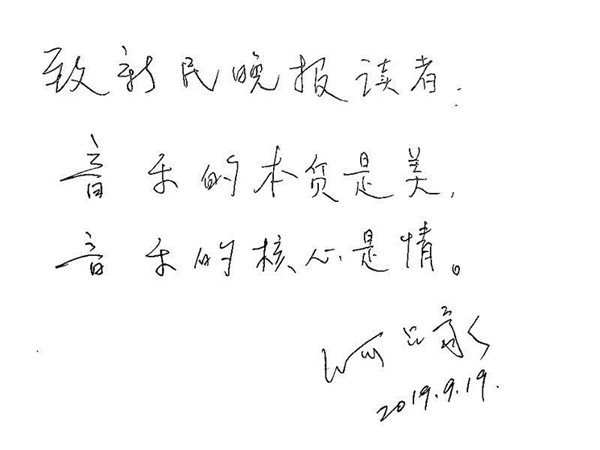 致新民晚报读者:
音乐的本质是美,
音乐的核心是情。
何占豪
2019.9.19.